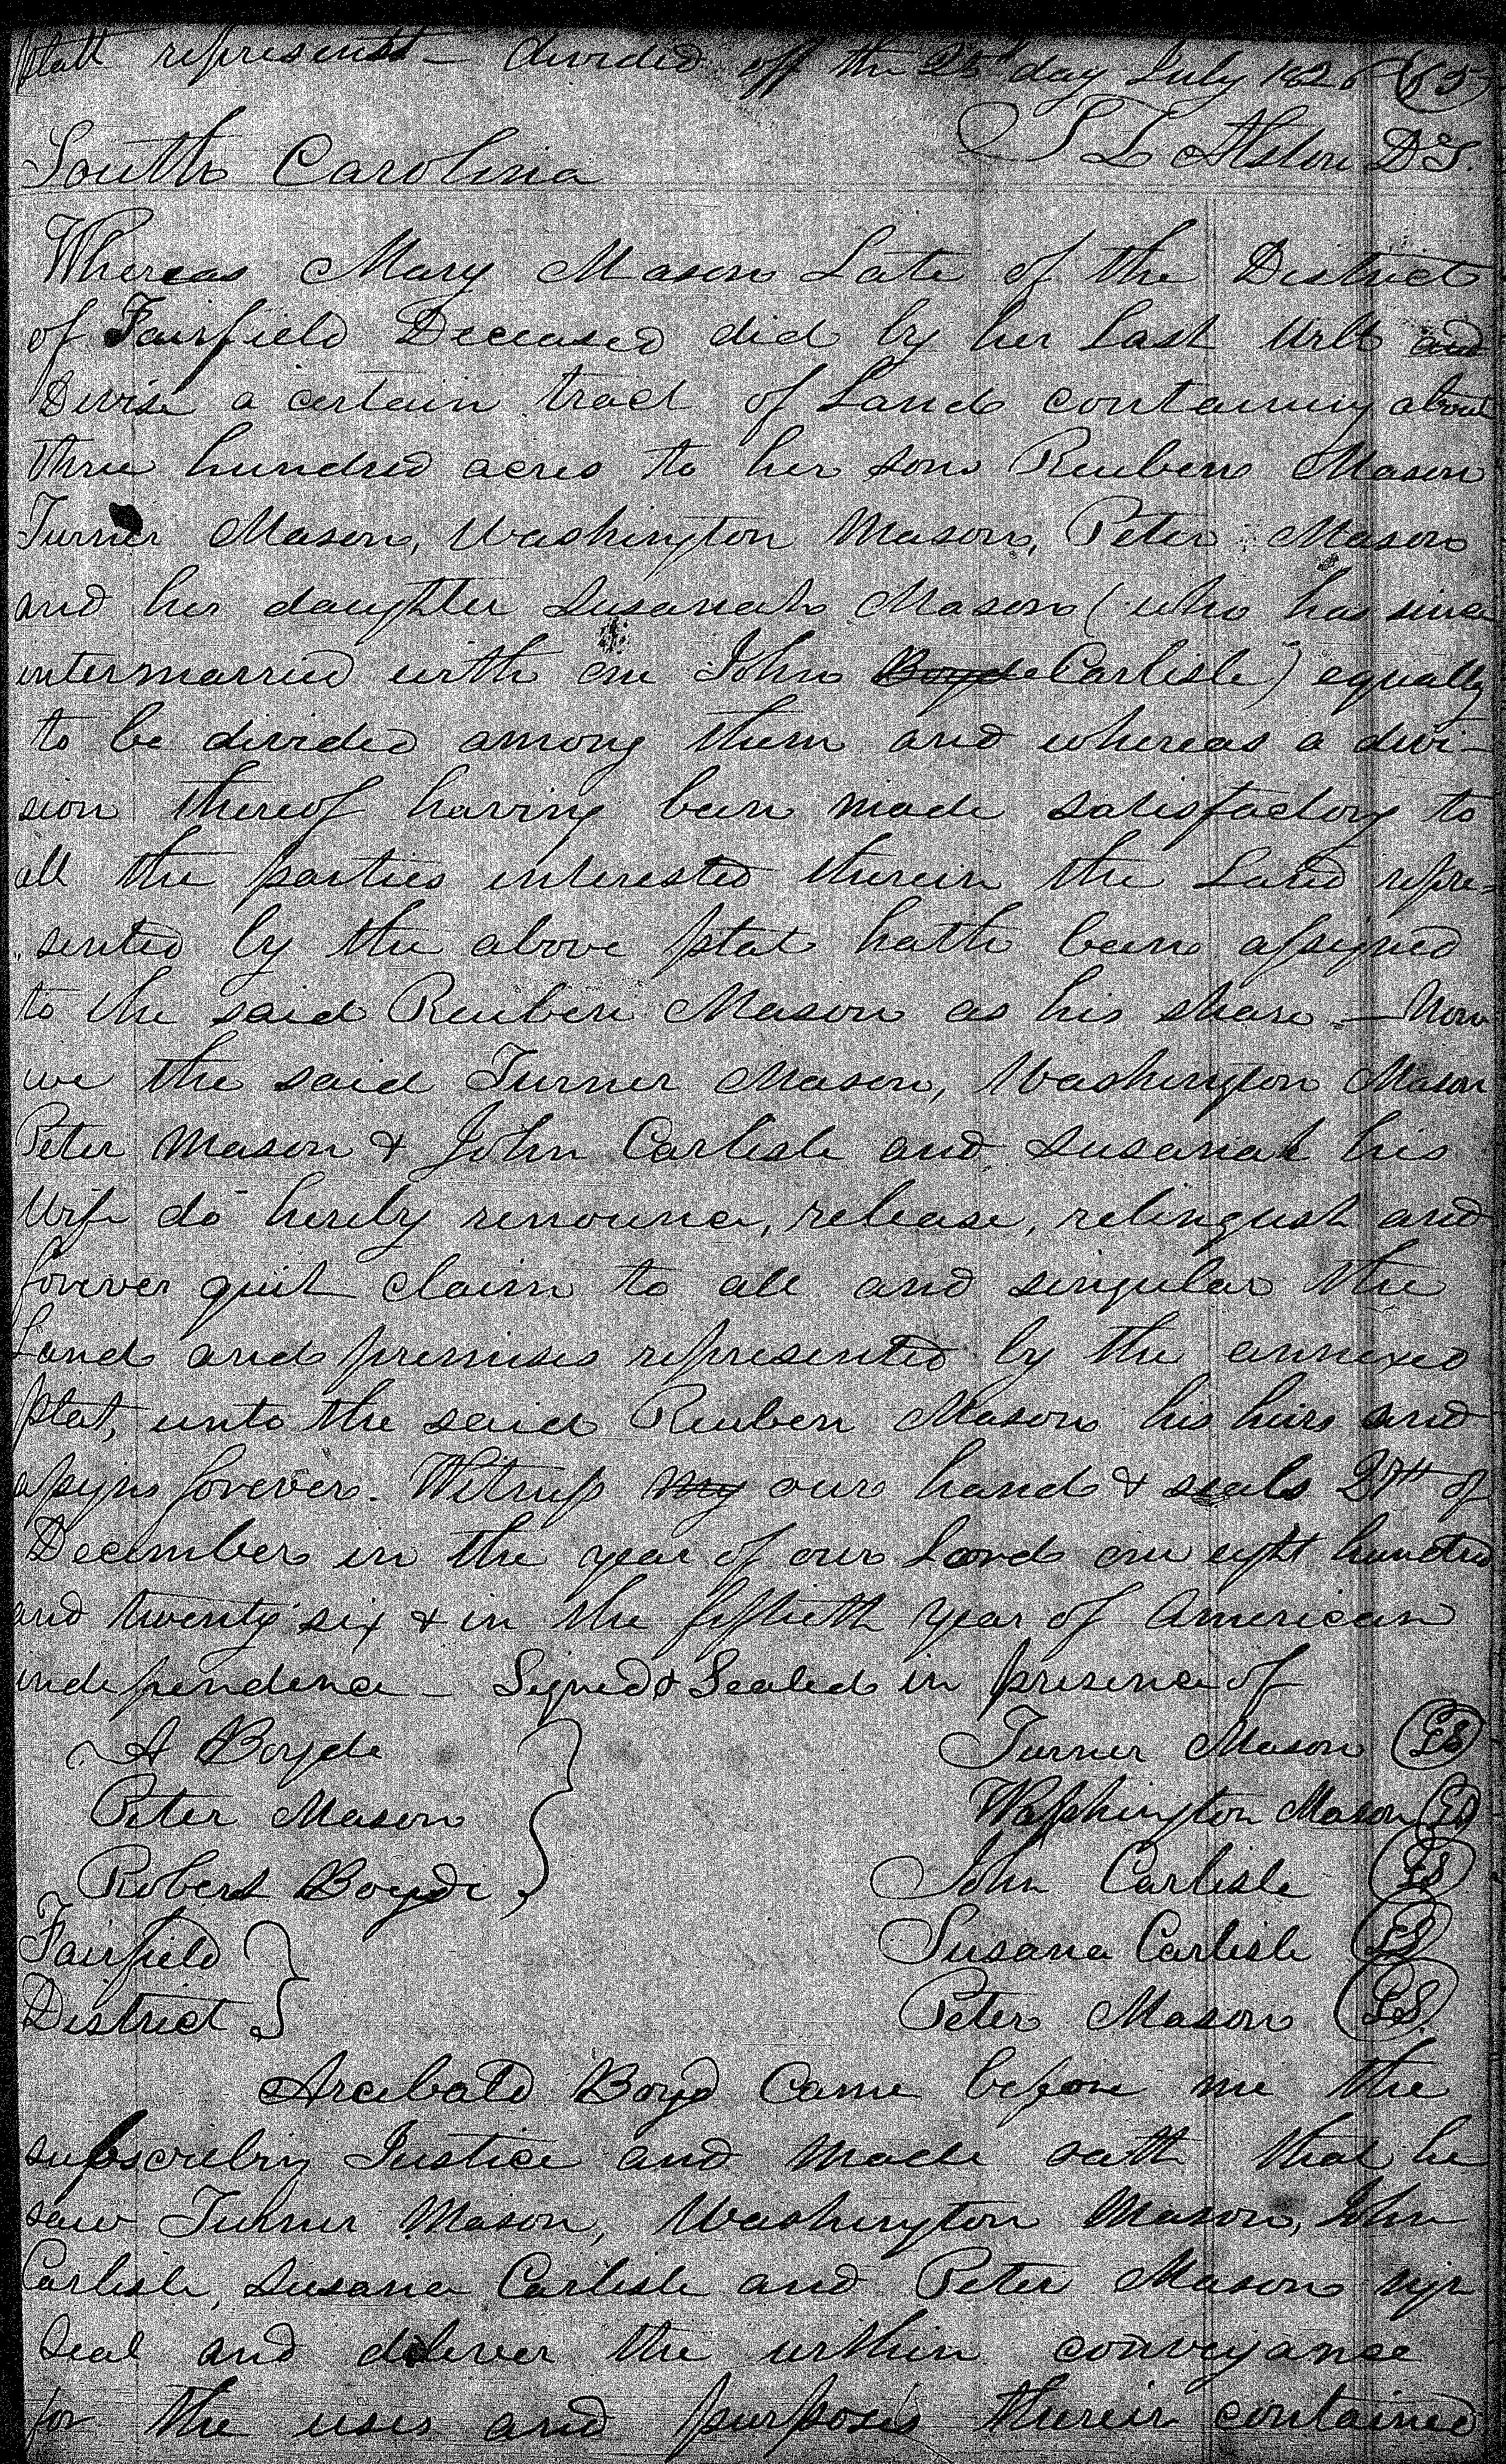 platt represents – divided off the 25th day July 1826 (65)
South Carolina
T L Alston D S.
Whereas Mary Mason Late of the District
of Fairfield Deceased did by her last Will and
Devise a certain tract of Land containing about
three hundred acres to her sons Reuben Mason
Turner Mason, Washington Mason, Peter Mason
and her daughter Susanah Mason (who has since
intermarried with one John Boyde Carlisle) equally
to be divided among them and whereas a divi-
sion thereof having been made satisfactory to
all the parties interested therein the Land repre=
sented by the above plat hath been assigned
to the said Reuben Mason as his share – Now
we the said Turner Mason, Washington Mason
Peter Mason & John Carlisle and Susanah his
Wife do hereby renounce, release, relinqush and
forever quit claim to all and singular the
Land and premises represented by the annexed
plat, unto the said Reuben Mason his heirs and
assigns forever. Witness my our hand & seals 27th of
December in the year of our Lord one eight hundred
and twenty six & in the fiftieth year of American
independence – Signed & Sealed in presence of
A Boyde
Turner Mason (LS)
Peter Mason
Washington Mason (LS)
Robert Boyde
John Carlisle (LS)
Fairfield
Susana Carlisle (LS)
District
Peter Mason (LS)
Arcibald Boyd Came before me the
subscribing Justice and made oath that he
saw Turner Mason, Washington Mason, John
Carlisle, Susana Carlisle and Peter Mason sign
Seal and deliver the within conveyance
for the uses and purposes therein contained